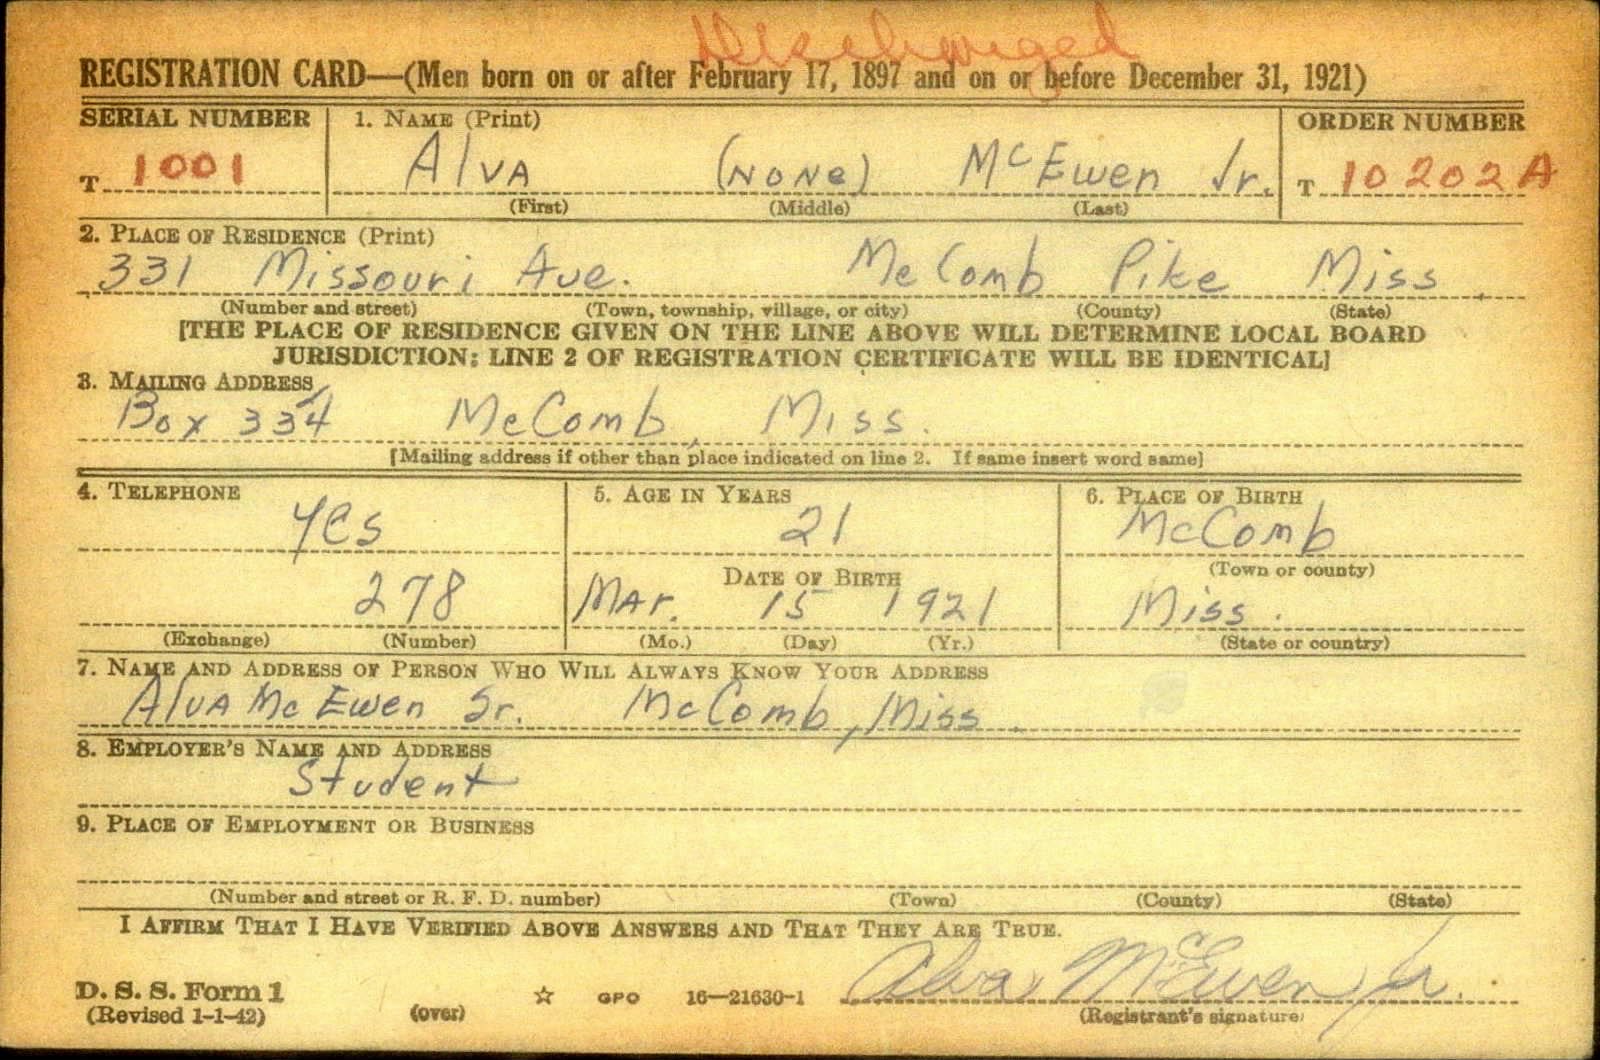 Discharged
REGISTRATION CARD—(Men born on or after February 17, 1897 and on or before December 31, 1921)
SERIAL NUMBER 1. NAME (Print) ORDER NUMBER
T 1001 Alva (None) McEwen Jr. T 10202A
(First) (Middle) (Last)
2. PLACE OF RESIDENCE (Print)
331 Missouri Ave. McComb Pike Miss
(Number and street) (Town, township, village, or city) (County) (State)
[THE PLACE OF RESIDENCE GIVEN ON THE LINE ABOVE WILL DETERMINE LOCAL BOARD
JURISDICTION; LINE 2 OF REGISTRATION CERTIFICATE WILL BE IDENTICAL]
3. MAILING ADDRESS
Box 334 McComb, Miss.
[Mailing address if other than place indicated on line 2. If same insert word same]
4. TELEPHONE 5. AGE IN YEARS 6. PLACE OF BIRTH
Yes 21 McComb
DATE OF BIRTH (Town or county)
278 Mar. 15 1921 Miss.
(Exchange) (Number) (Mo.) (Day) (Yr.) (State or country)
7. NAME AND ADDRESS OF PERSON WHO WILL ALWAYS KNOW YOUR ADDRESS
Alva McEwen Sr. McComb, Miss.
8. EMPLOYER'S NAME AND ADDRESS
Student
9. PLACE OF EMPLOYMENT OR BUSINESS
(Number and street or R. F. D. number) (Town) (County) (State)
I AFFIRM THAT I HAVE VERIFIED ABOVE ANSWERS AND THAT THEY ARE TRUE.
Alva McEwen Jr.
D. S. S. Form 1 (over) ☆ GPO 16—21630-1
(Revised 1-1-42) (Registrant's signature)